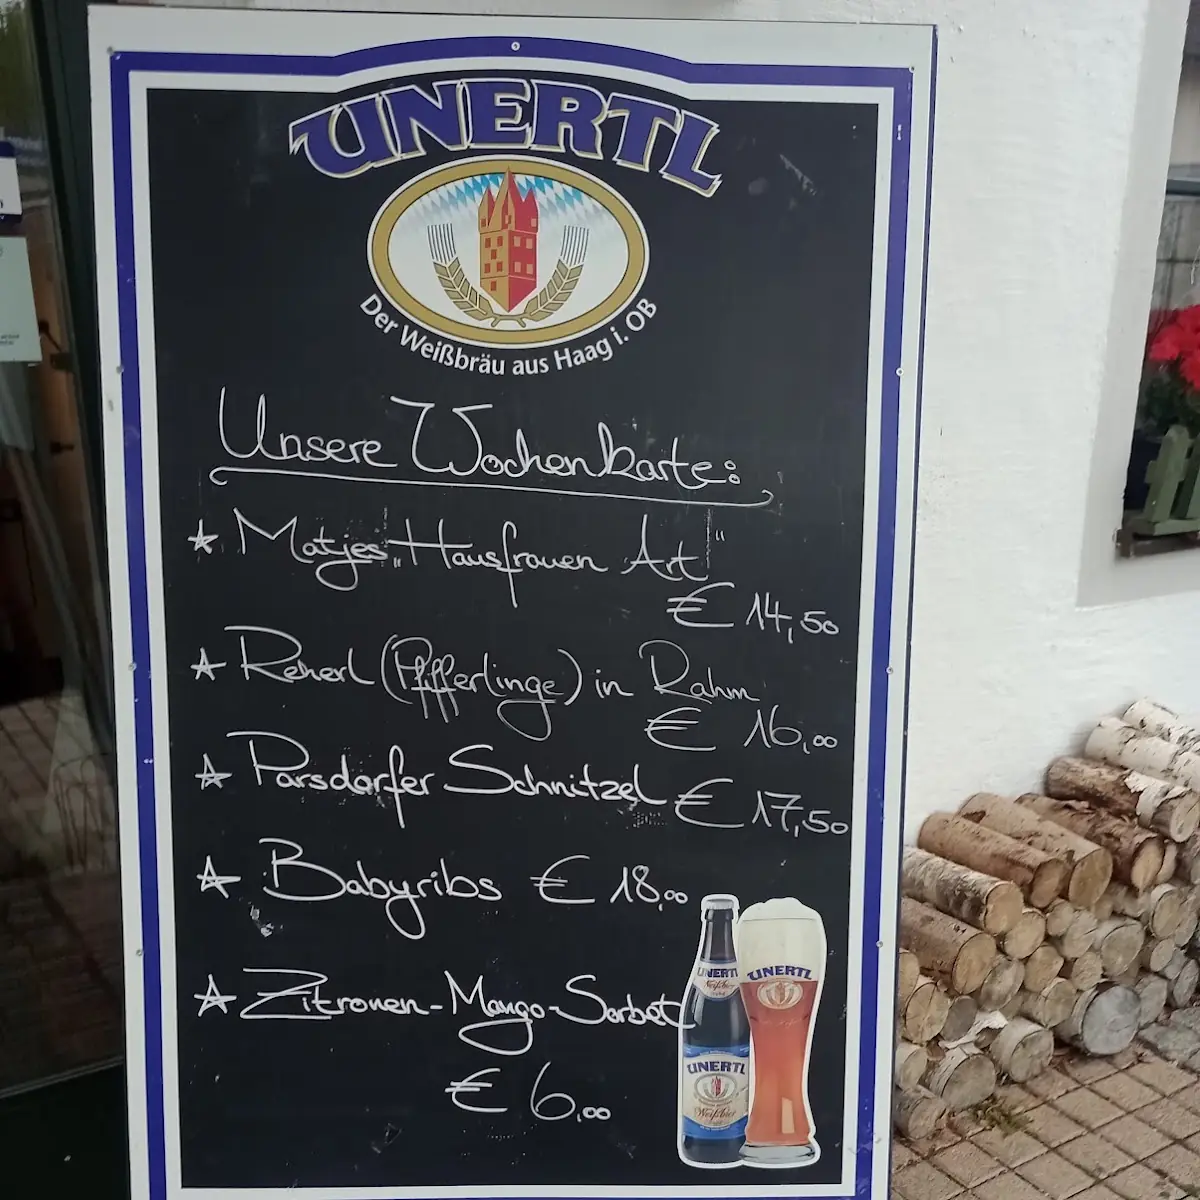 UNERTL
Der Weißbräu aus Haag i. OB
Unsere Wochenkarte:
☆ Matjes „Hausfrauen Art“
€ 14,50
☆ Reherl (Pfifferlinge) in Rahm
€ 16,00
☆ Parsdorfer Schnitzel € 17,50
☆ Babyribs € 18,00
☆ Zitronen-Mango-Sorbet
€ 6,00
UNERTL
Weißbier
UNERTL
UNERTL
Weißbier